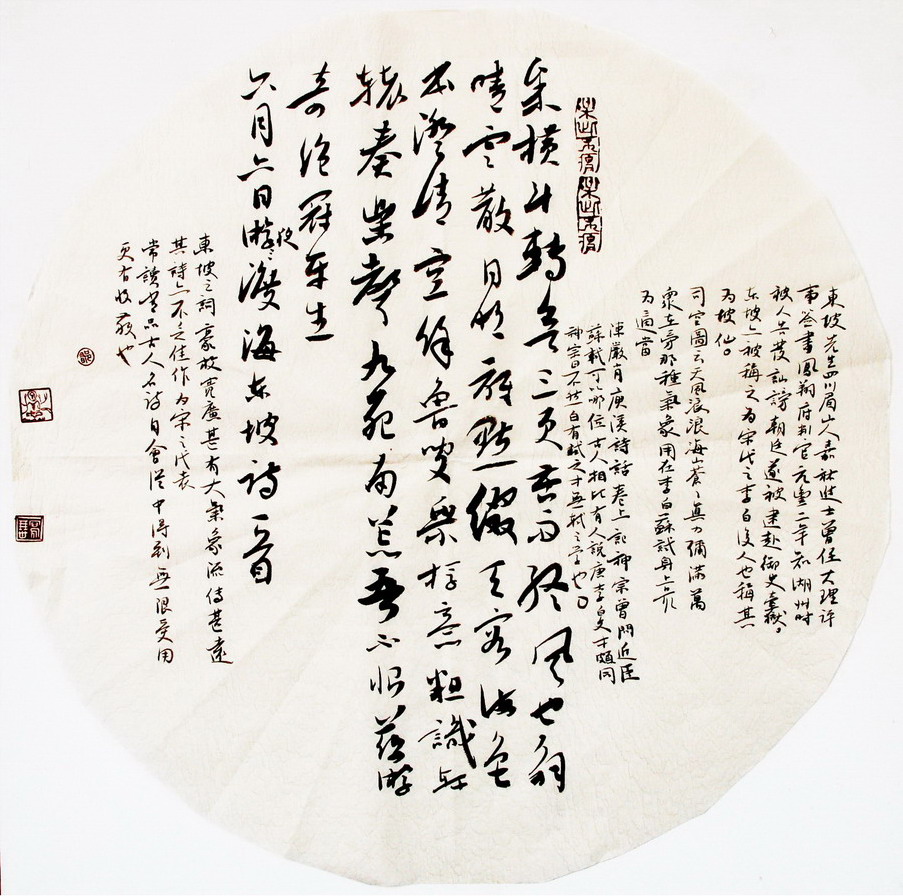 東坡先生四川眉山人嘉祐進士曾任大理評
事簽書鳳翔府判官元豐二年知湖州時
被人告發訕謗朝廷遂被逮赴御史臺獄。
东坡亦被稱之为宋代之李白後人也稱其
为坡仙。
司空圖云天風浪浪海山蒼蒼真力彌滿萬
象在旁那種氣象用在李白蘇試身上最
为適當
陳嚴肖庚溪詩話卷上記神宗曾問近臣
蘇軾可以哪位古人相比有人說唐李白文才頗同
神宗曰不然白有軾之才無軾之学也。
参横斗轉欲三更苦雨終風也解
晴雲散月明誰點缀天容海色
本澄清空餘魯叟乘桴意粗識軒
辕奏樂聲九死南荒吾不恨茲游
奇绝冠平生
六月六日夜渡海东坡诗一首
東坡之詞豪放寬廣甚有大氣象流傳甚遠
其詩亦不乏佳作为宋之代表
常讀古人名詩自會從中得到無限受用
更有收获也